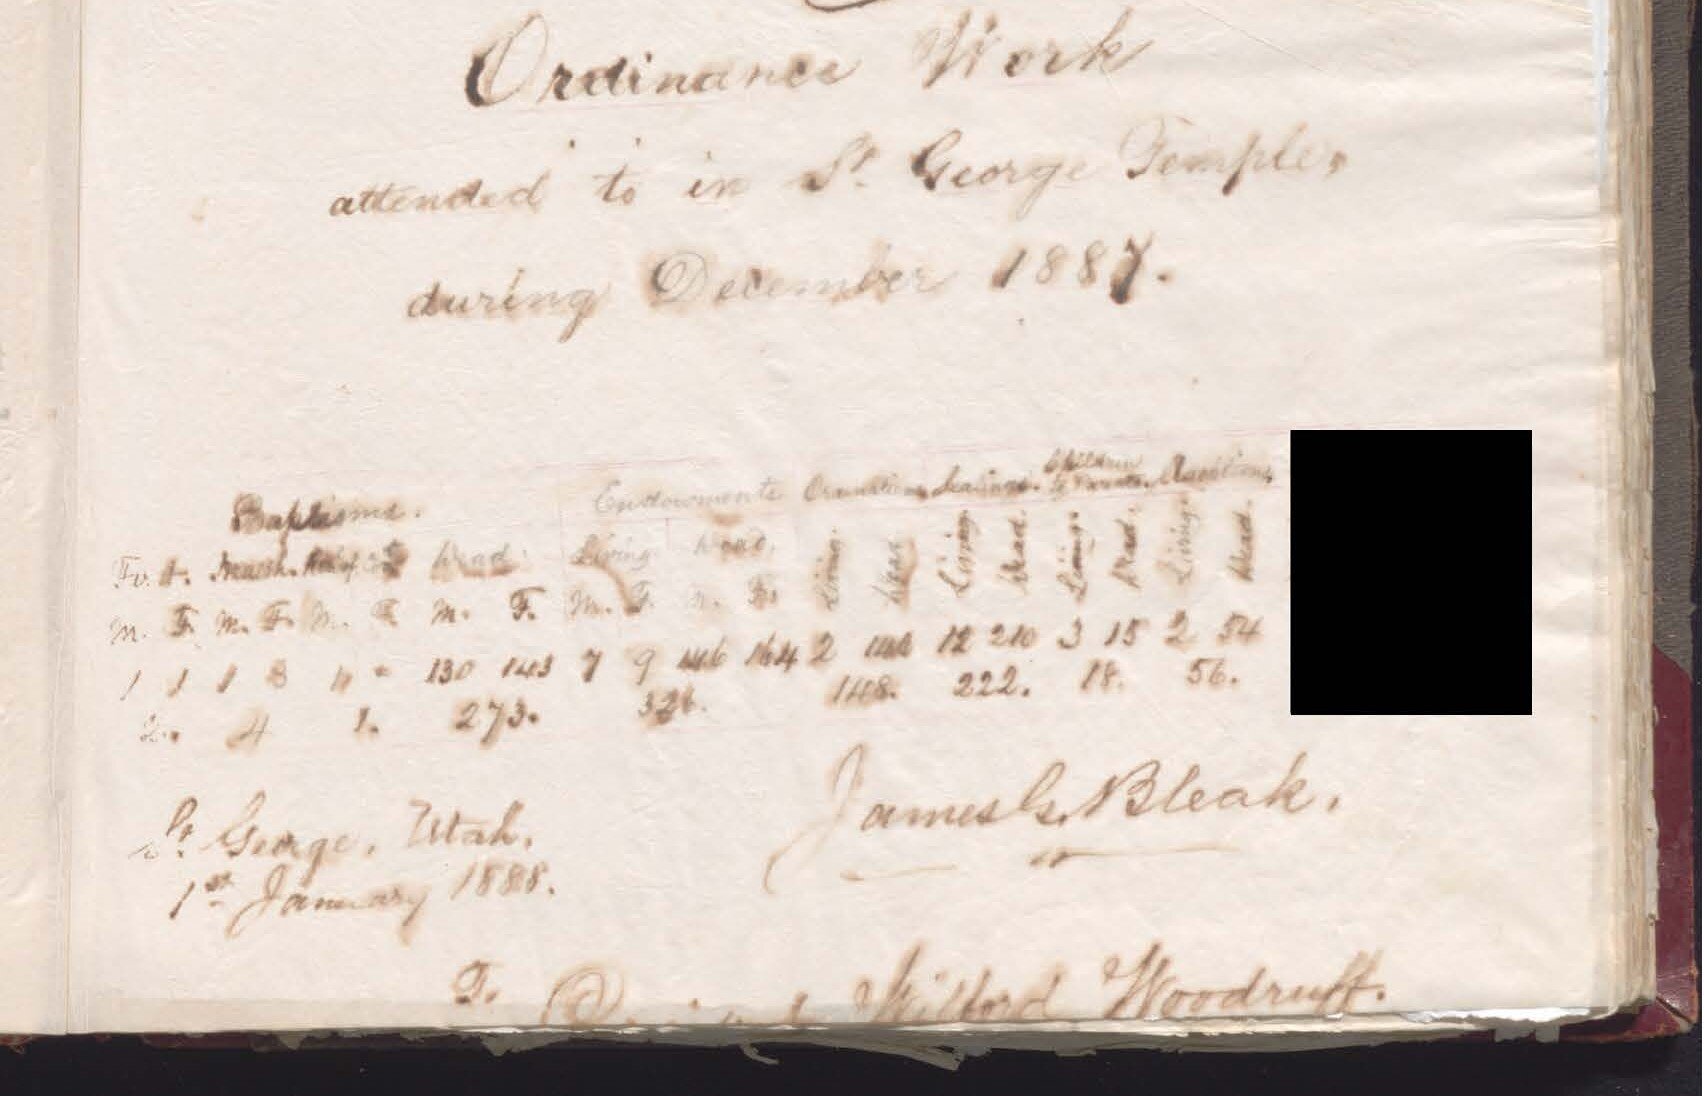 Ordinance Work
attended to in St. George Temple,
during December 1887.
Baptisms. Endowments Ordinations Sealings. Children to Parents. Adoptions.
Dead. Living. Dead. Living. Dead. Living. Dead. Living. Dead. Living. Dead.
M. F. M. F. M. F. M. F. M. F. M. F.
1 1 1 3 " " 130 143 7 9 146 164 2 146 12 210 3 15 2 54
2. 4 1. 273. 326. 148. 222. 18. 56.
St. George, Utah.
1st January 1888.
James G. Bleak.
To Wilford Woodruff.